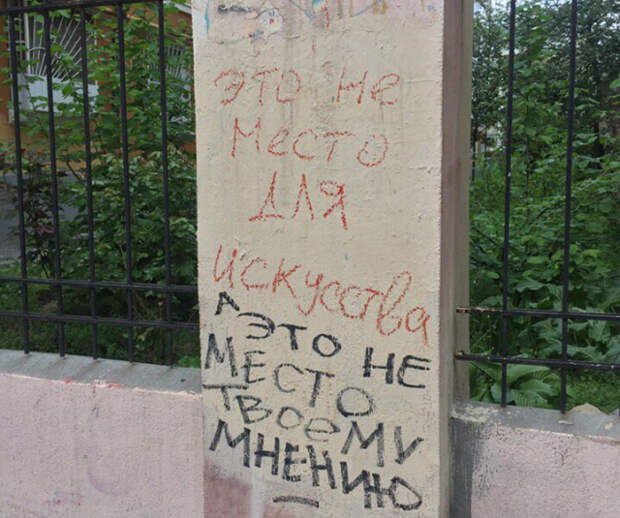 это не
место
для
искусства
а
это не
место
твоему
мнению